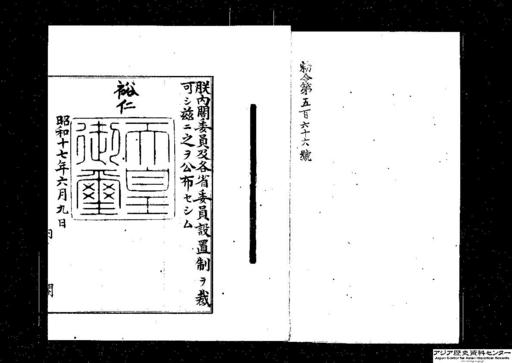 勅令第五百六十六號
朕内閣委員及各省委員設置制ヲ裁
可シ茲ニ之ヲ公布セシム
裕仁
天皇
御璽
昭和十七年六月九日
内閣
アジア歴史資料センター
Japan Center for Asian Historical Records